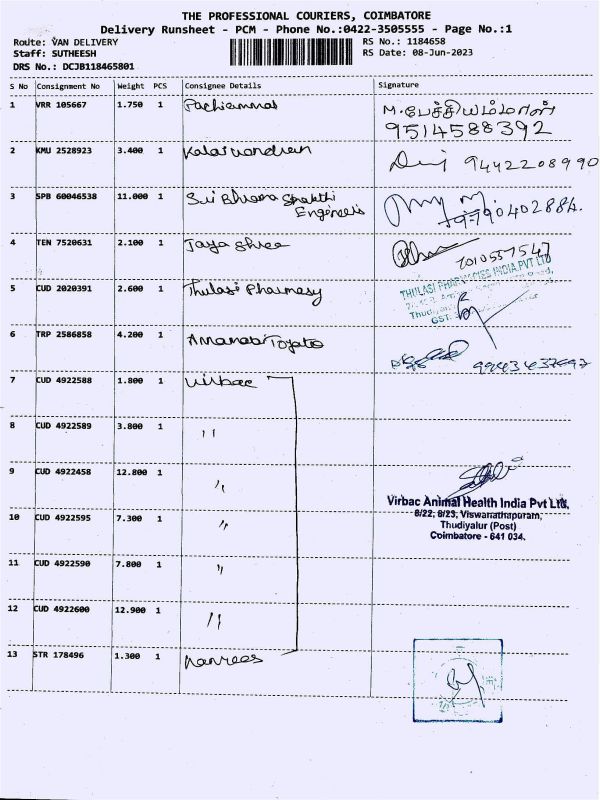 THE PROFESSIONAL COURIERS, COIMBATORE
Delivery Runsheet - PCM - Phone No.:0422-3505555 - Page No.:1
Route: VAN DELIVERY
Staff: SUTHEESH
DRS No.: DCJB118465801
RS No.: 1184658
RS Date: 08-Jun-2023
S No Consignment No Weight PCS Consignee Details Signature
1 VRR 105667 1.750 1 Pachiammal
M.பேச்சியம்மாள்
9514588392
2 KMU 2528923 3.400 1 Kalaivandhan 9442208990
3 SPB 60046538 11.000 1 Sri Bhuvana Shakthi
Engineers
4 TEN 7520631 2.100 1 Jaya Shree
7010557547
5 CUD 2020391 2.600 1 Thulasi Pharmacy
THULASI PHARMACIES INDIA PVT LTD
GST:
6 TRP 2586858 4.200 1 Anamalai Toyota
7 CUD 4922588 1.800 1 Virbac
8 CUD 4922589 3.800 1 "
9 CUD 4922458 12.800 1 "
Virbac Animal Health India Pvt Ltd,
8/22, 8/23, Viswanathapuram,
Thudiyalur (Post)
Coimbatore - 641 034.
10 CUD 4922595 7.300 1 "
11 CUD 4922590 7.800 1 "
12 CUD 4922600 12.900 1 "
13 STR 178496 1.300 1